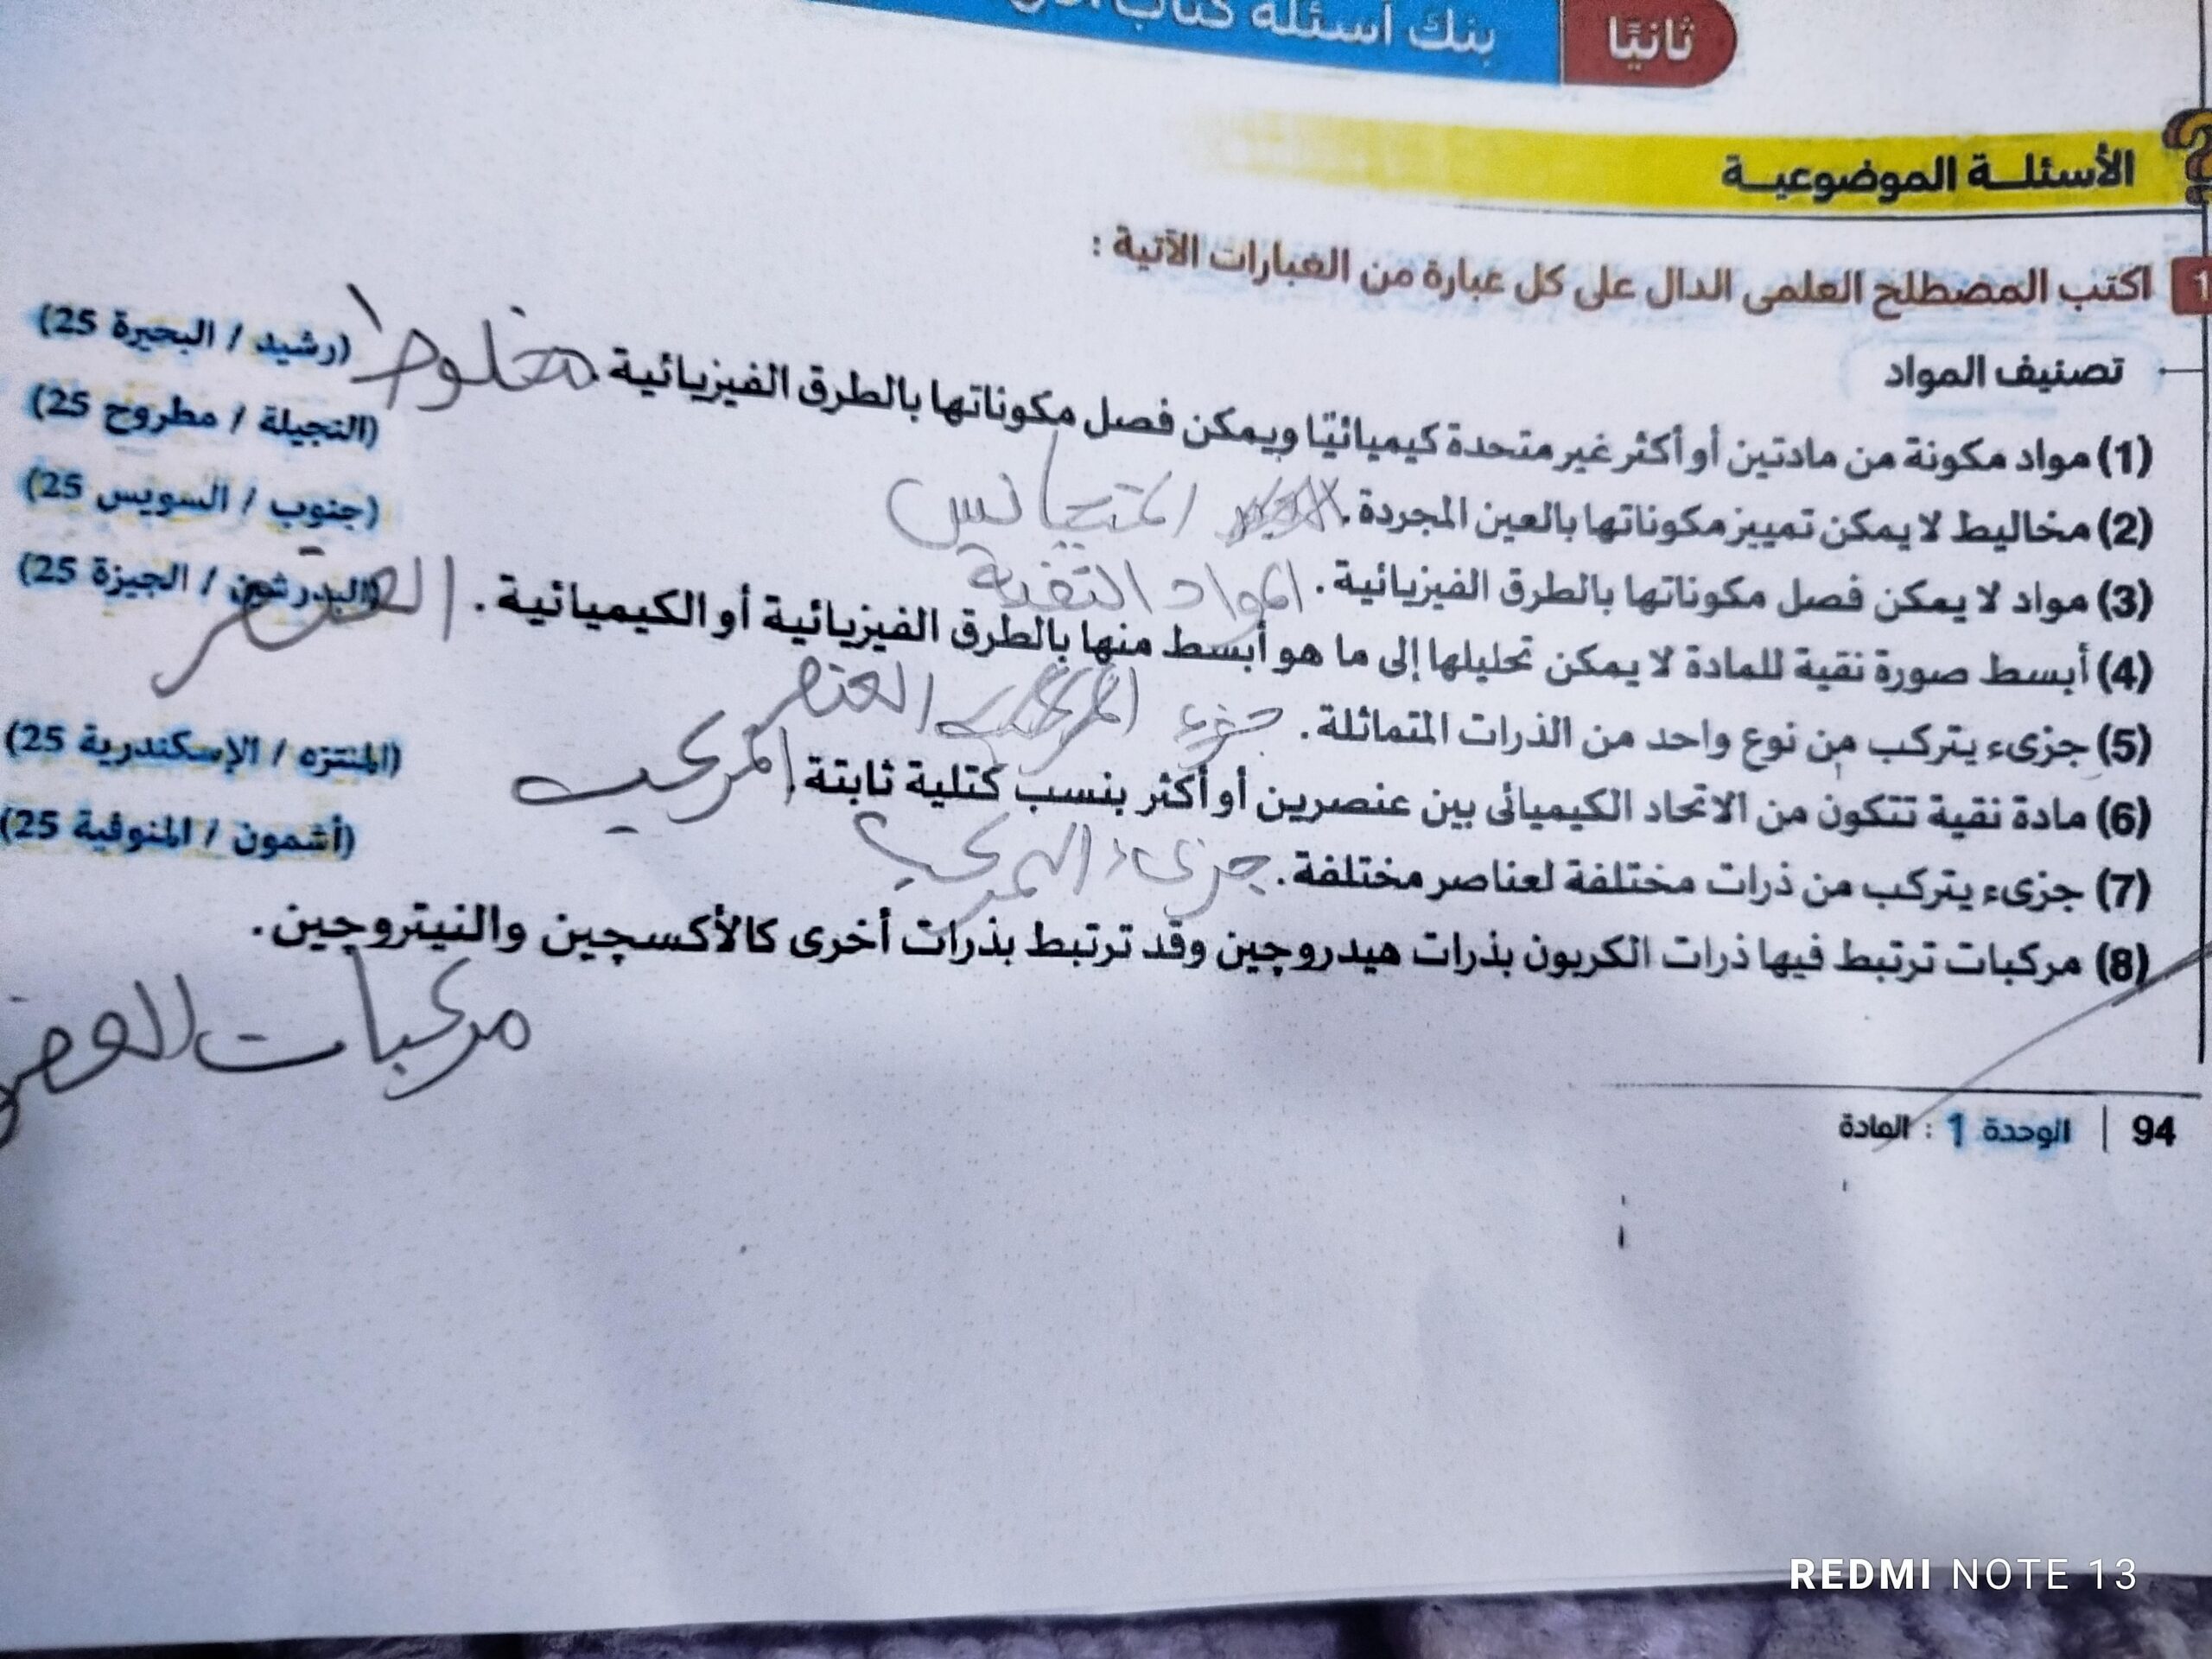 ثانيًا بنك أسئلة كتاب
الأسئلة الموضوعية
1 اكتب المصطلح العلمى الدال على كل عبارة من العبارات الآتية :
تصنيف المواد
(1) مواد مكونة من مادتين أو أكثر غير متحدة كيميائيًا ويمكن فصل مكوناتها بالطرق الفيزيائية . مخلوط (رشيد / البحيرة 25)
(2) مخاليط لا يمكن تمييز مكوناتها بالعين المجردة . المتجانس (النجيلة / مطروح 25)
(3) مواد لا يمكن فصل مكوناتها بالطرق الفيزيائية . المواد النقية (جنوب / السويس 25)
(4) أبسط صورة نقية للمادة لا يمكن تحليلها إلى ما هو أبسط منها بالطرق الفيزيائية أو الكيميائية . العنصر (البدرشين / الجيزة 25)
(5) جزىء يتركب من نوع واحد من الذرات المتماثلة . جزىء العنصر
(6) مادة نقية تتكون من الاتحاد الكيميائى بين عنصرين أو أكثر بنسب كتلية ثابتة . المركب (المنتزه / الإسكندرية 25)
(7) جزىء يتركب من ذرات مختلفة لعناصر مختلفة . جزىء المركب (أشمون / المنوفية 25)
(8) مركبات ترتبط فيها ذرات الكربون بذرات هيدروچين وقد ترتبط بذرات أخرى كالأكسچين والنيتروچين .
مركبات
94 | الوحدة 1 : المادة
REDMI NOTE 13